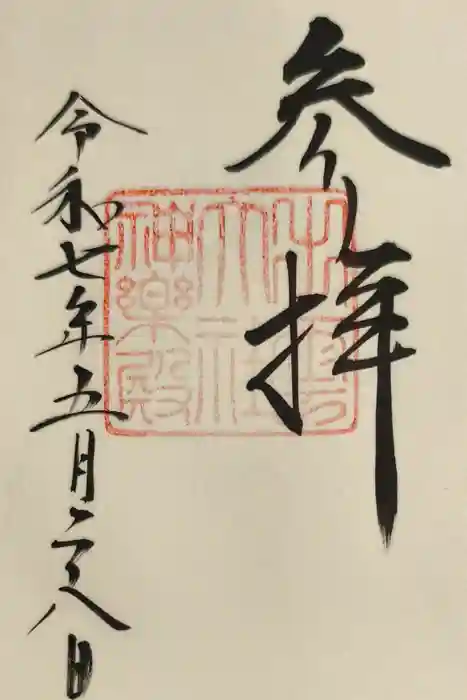 参拝
出雲
大社
神樂殿
令和七年五月二八日